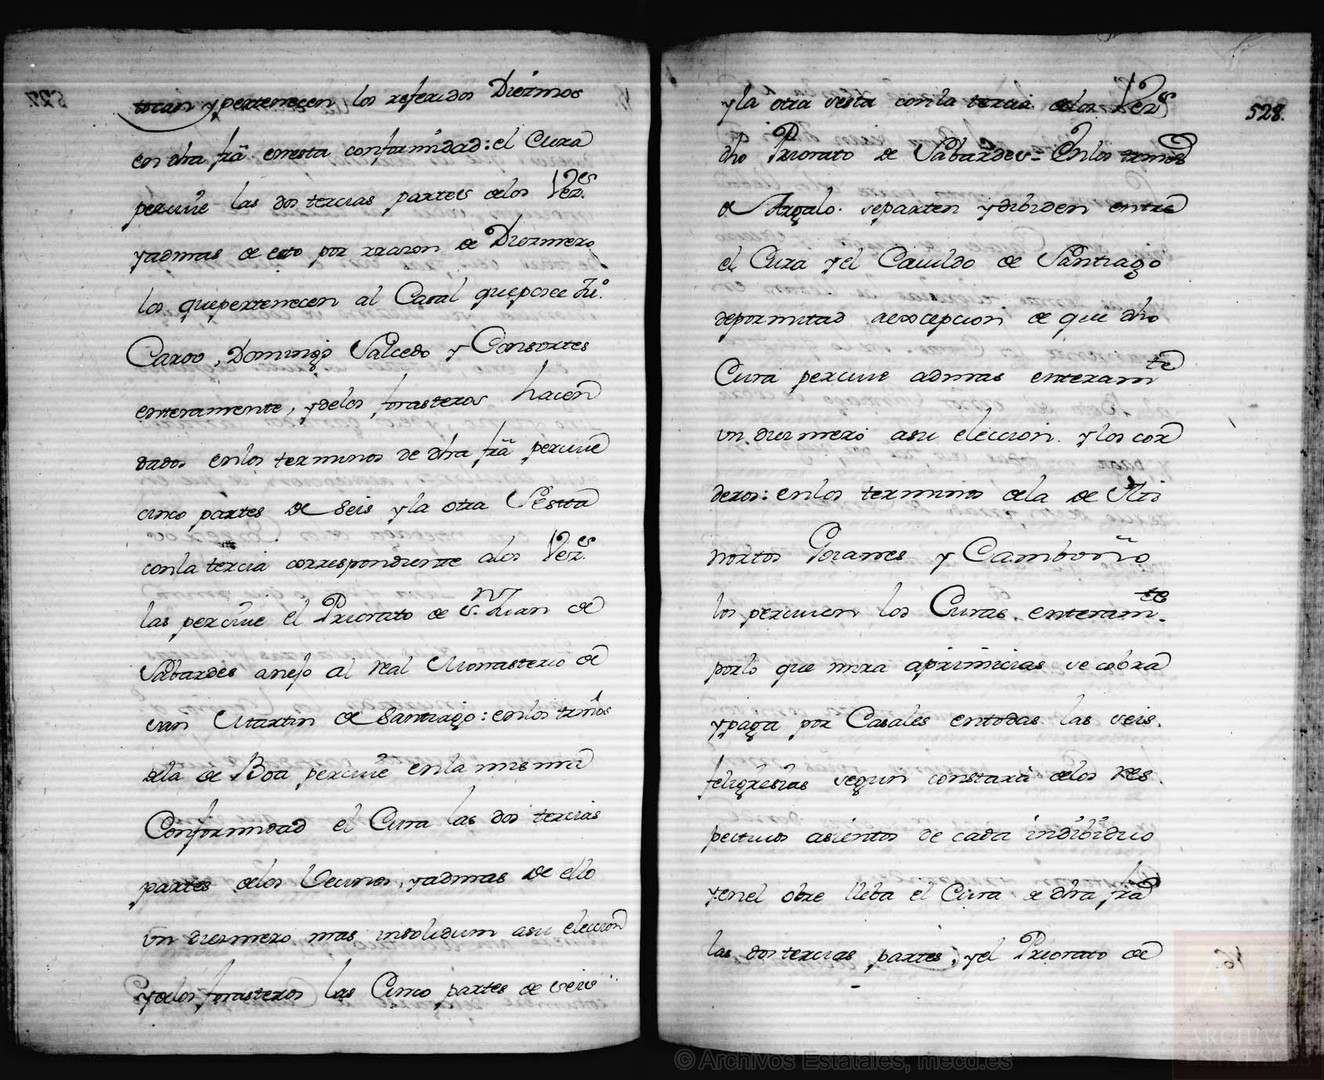 tocan y pertenecen los referidos Diezmos
en dha frã en esta conformidad: el Cura
percive las dos tercias partes delos Vez.es
y admas de esto por rrazon de Diezmero
los que pertenecen al Casal que posee Ju.o
Caroo, Domingo Salcedo y Consortes
enteramente, y delos forasteros hacen
dados en los terminos de dha frã percive
cinco partes de seis y la otra Sesta
con la tercia correspondiente alos Vez.es
las percive el Priorato de S. Juan de
Sabardes anejo al real Monasterio de
san Martin de Santiago: en los trm̃os
dela de Boa percive en la misma
Conformidad el Cura las dos tercias
partes delos Vecinos, y admas de ello
un diezmero mas insolidum asu eleccion
y delos forasteros las Cinco partes de seis
y la otra sesta con la tercia delos Vez.s
dho Priorato de Sabardes = En los trmos
de Argalo separten y dibiden entre
el Cura y el Cavildo de Santiago
depormitad aexcepcion de que dho
Cura percive admas enteram.te
un diezmero asu eleccion y los cor
deros: en los terminos dela de
nortos Roanes y Camboño
los perciven los Curas enteram.te
por lo que mira aprimicias se cobra
y paga por Casales entodas las seis
feligresias segun constara delos res
pectivos asientos de cada indibiduo
y en el obre lleba el Cura de dha frã
las dos tercias partes, y el Priorato de
528.